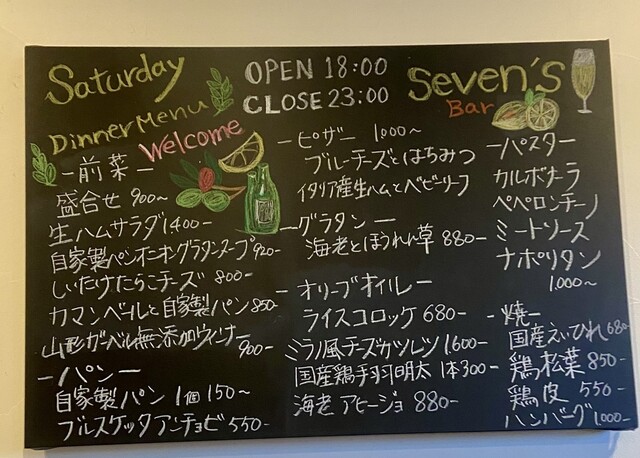 Saturday
Dinner Menu
Welcome
OPEN 18:00
CLOSE 23:00
Seven's
Bar
ー前菜ー
盛合せ 900〜
生ハムサラダ 1400-
自家製パンオニオングラタンスープ 920-
しいたけたらこチーズ 800-
カマンベールと自家製パン 850-
山形ガーベル無添加ウィンナー
900-
ーパンー
自家製パン 1個 150〜
ブルスケッタアンチョビ 550-
ーピザー 1000〜
ブルーチーズとはちみつ
イタリア産生ハムとベビーリーフ
ーグラタンー
海老とほうれん草 880-
ーオリーブオイルー
ライスコロッケ 680-
ミラノ風チーズカツレツ 1,600-
国産鶏手羽明太 1本300-
海老アヒージョ 880-
ーパスター
カルボナーラ
ペペロンチーノ
ミートソース
ナポリタン
1,000〜
ー焼ー
国産えいひれ 680-
鶏松葉 850-
鶏皮 550-
ハンバーグ 1,000-